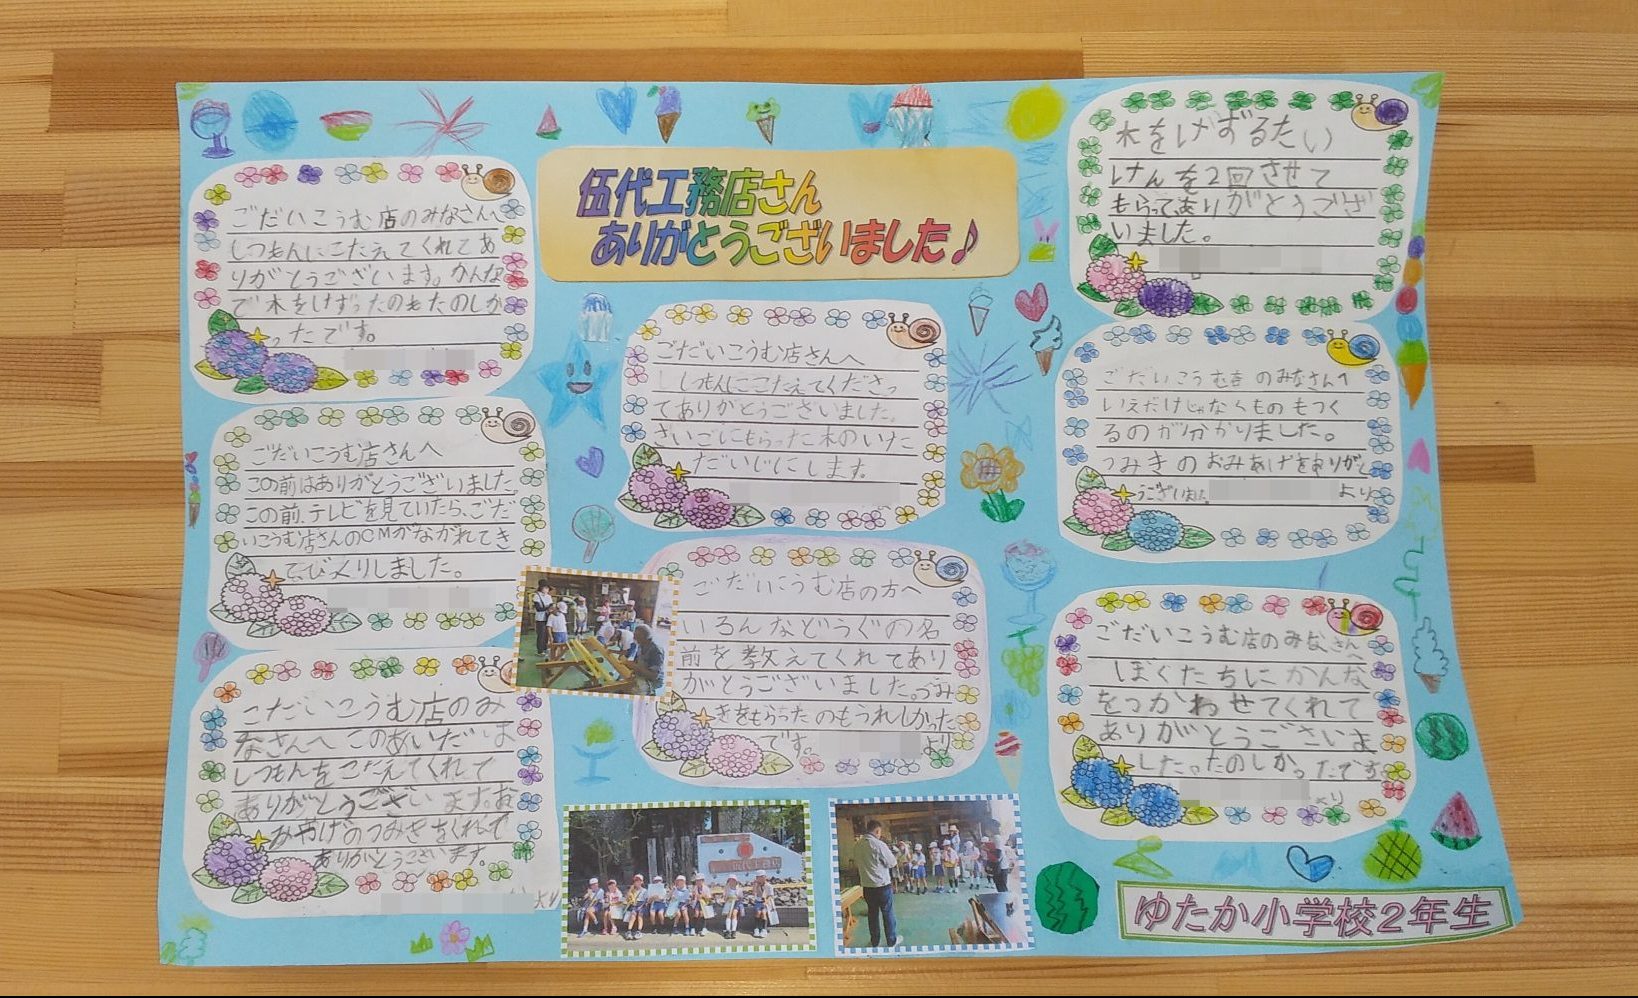 伍代工務店さん
ありがとうございました♪
ごだいこうむ店のみなさんへ
しつもんにこたえてくれてあ
りがとうございます。かんな
で木をけずったのもたのしか
ったです。
ごだいこうむ店さんへ
この前はありがとうございました。
この前、テレビを見ていたら、ごだ
いこうむ店さんのCMがながれてき
てびっくりしました。
ごだいこうむ店のみ
なさんへ このあいだは
しつもんをこたえてくれて
ありがとうございます。お
みやげのつみきをくれて
ありがとうございます。
より
ごだいこうむ店さんへ
しつもんにこたえてくださっ
てありがとうございました。
さいごにもらった木のいた
だいじにします。
ごだいこうむ店の方へ
いろんなどうぐの名
前を教えてくれてあり
がとうございました。つみ
きをもらったのもうれしかった
です。
より
木をけずるたい
けんを2回させて
もらって、ありがとうござ
いました。
ごだいこうむ店のみなさんへ
いえだけじゃなくものもつく
るのが分かりました。
つみきのおみあげをありがと
うございました。
より
ごだいこうむ店のみなさんへ
ぼくたちにかんな
をつかわせてくれて
ありがとうございま
した。たのしかったです
より
ゆたか小学校2年生